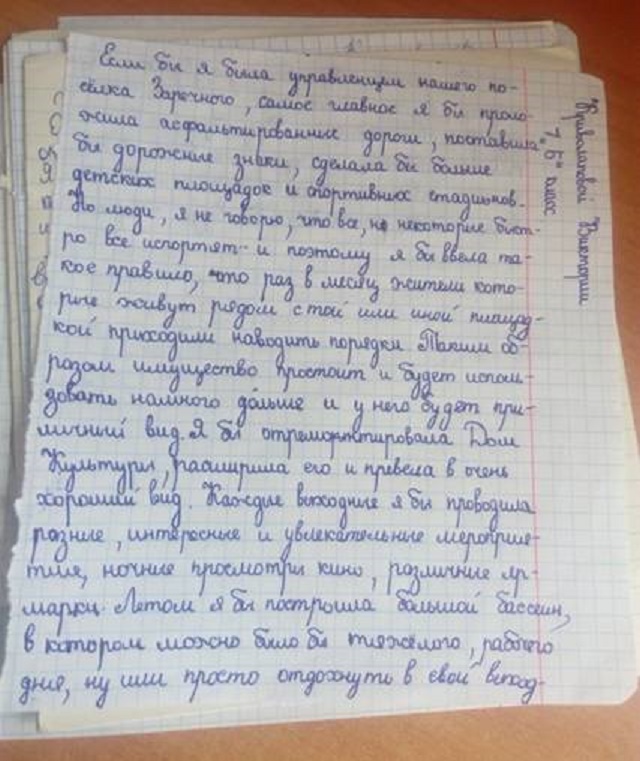 Если бы я была управленцем нашего по-
сёлка Заречного, самое главное я бы проло-
жила асфальтированные дороги, поставила
бы дорожные знаки, сделала бы больше
детских площадок и спортивных стадионов.
Но люди, я не говорю, что все, но некоторые быст-
ро все испортят и поэтому я бы ввела та-
кое правило, что раз в месяц жители кото-
рые живут рядом с той или иной площад-
кой приходили наводить порядки. Таким об-
разом имущество простоит и будет исполь-
зовать намного дольше и у него будет при-
личный вид. Я бы отремонтировала Дом
Культуры, расширила его и привела в очень
хороший вид. Каждые выходные я бы проводила
разные, интересные и увлекательные мероприя-
тия, ночные просмотры кино, различные яр-
марки. Летом я бы построила большой бассейн,
в котором можно было бы тяжёлого, рабочего
дня, ну или просто отдохнуть в свой выход-
Виктории
7 "Б" класс